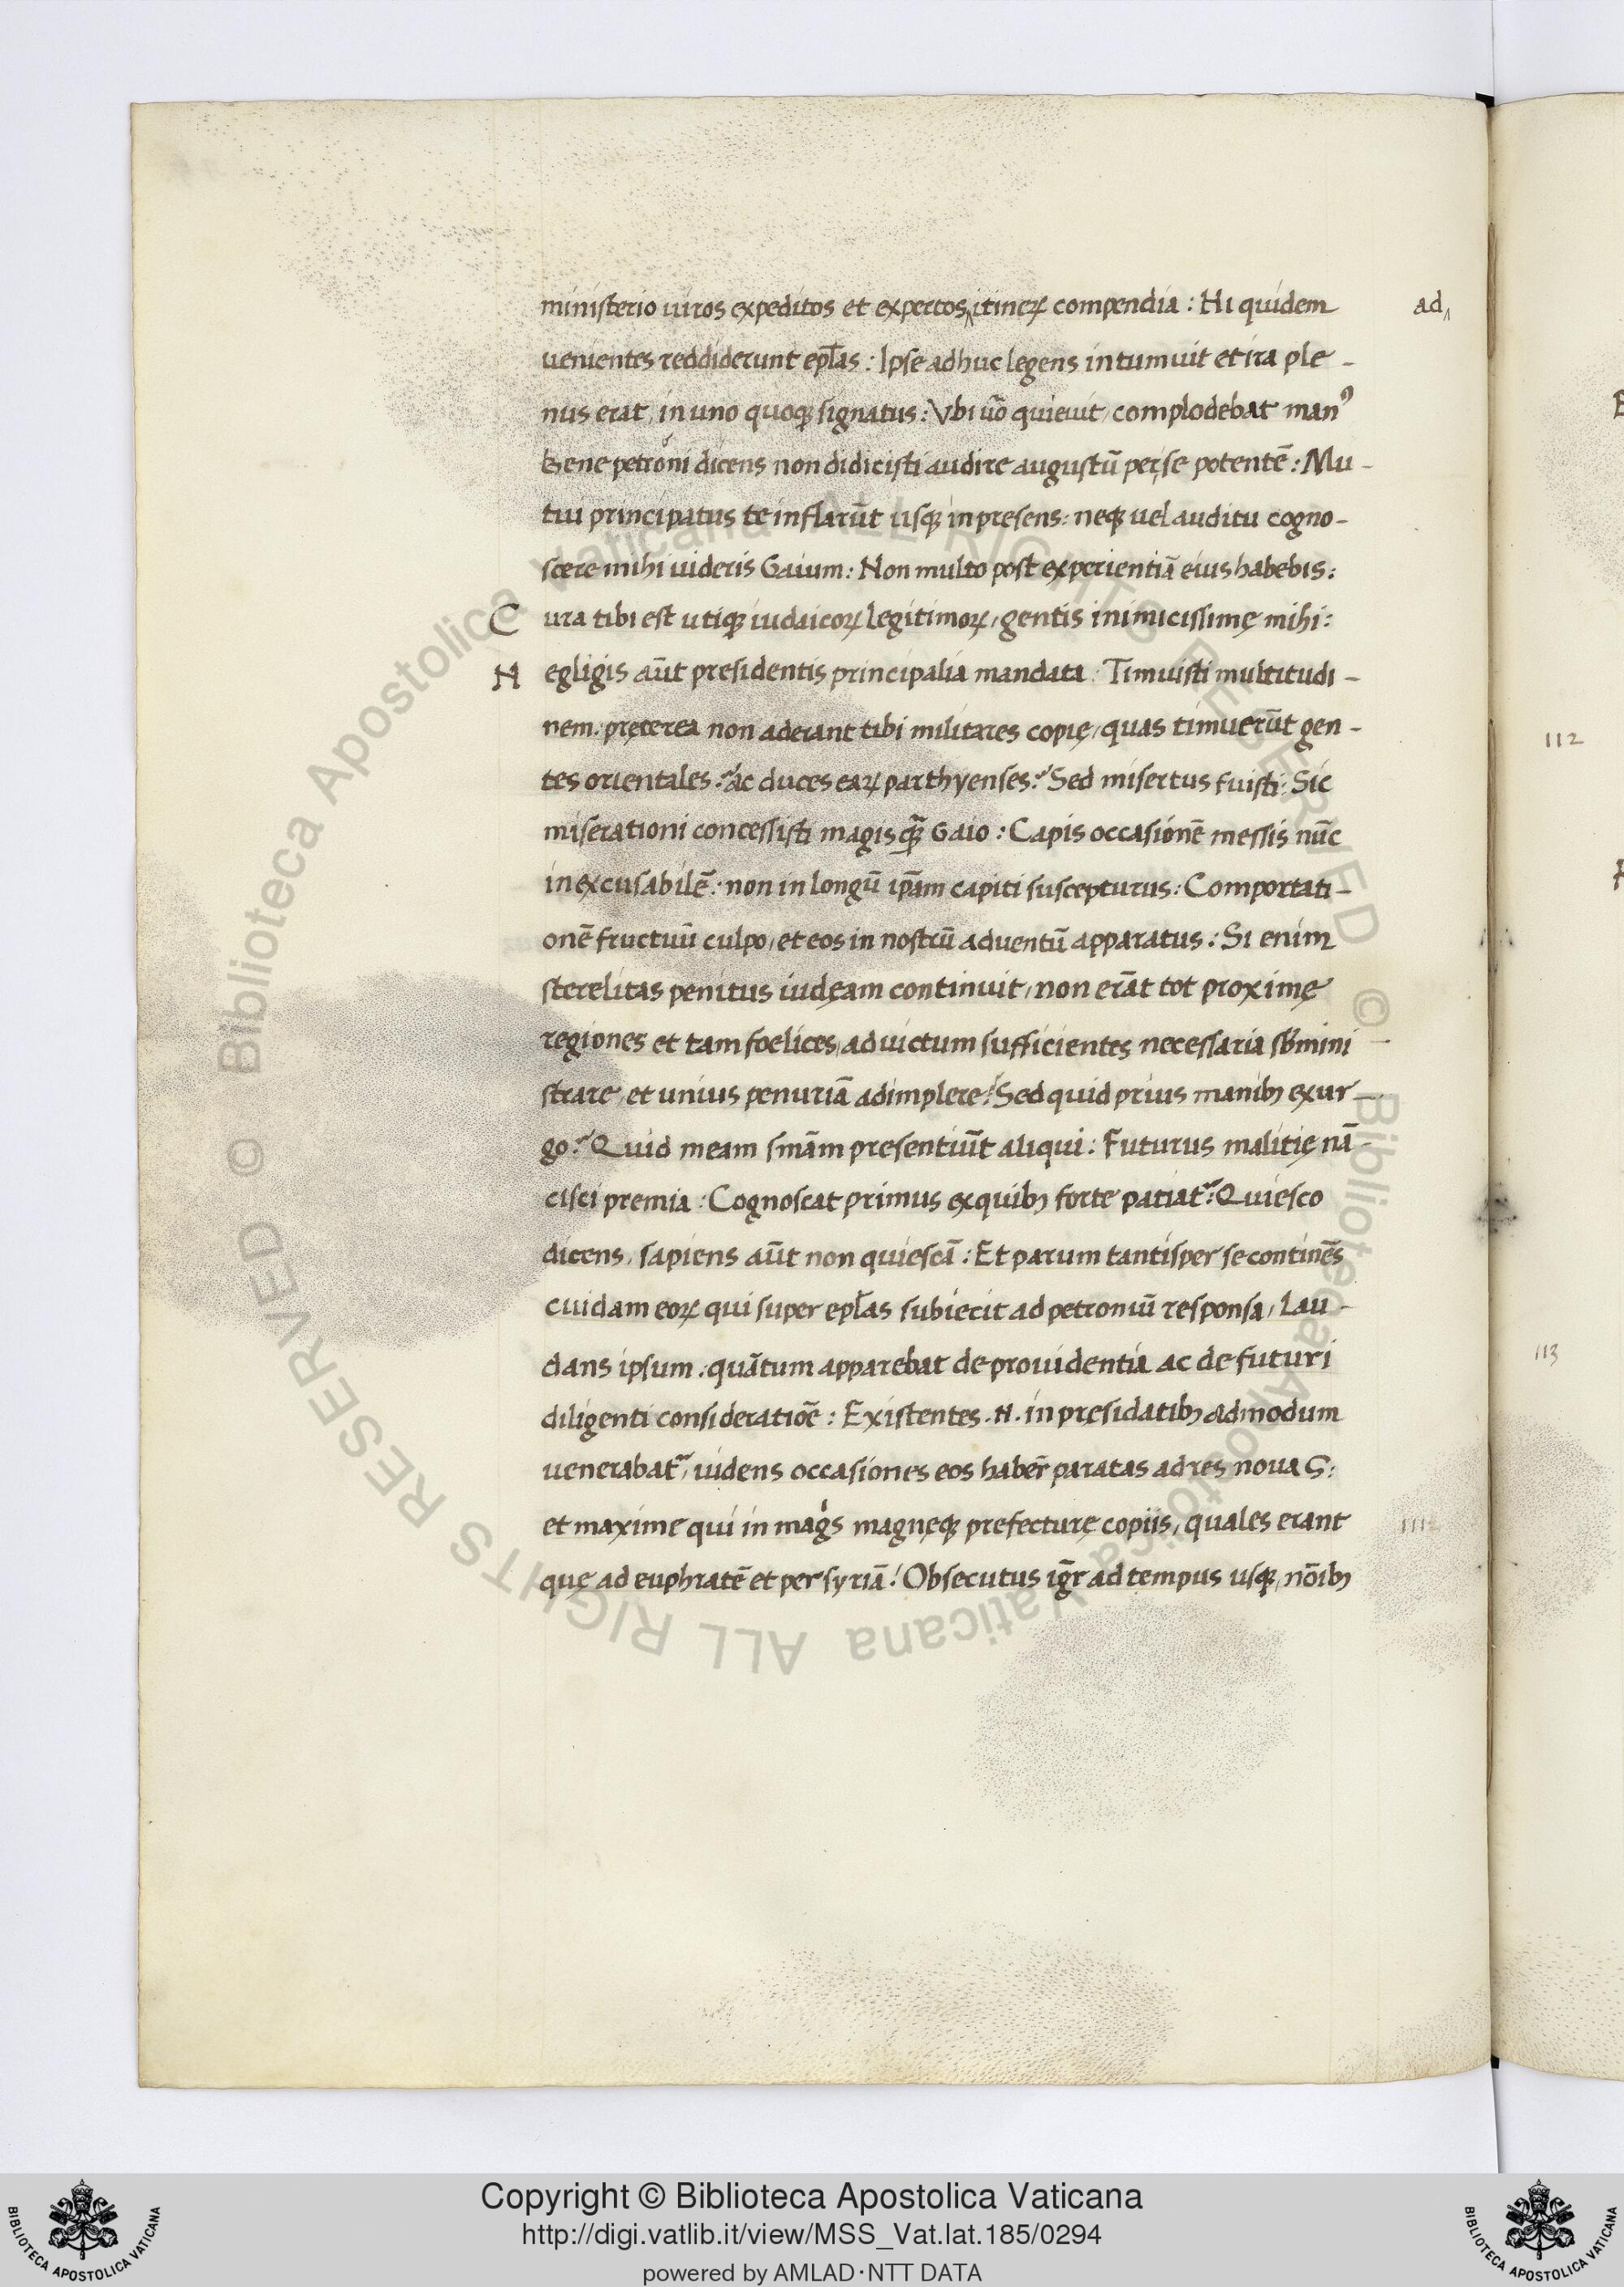 ministerio uiros expeditos et expertos‸itineꝝ compendia : Hi quidem
ad‸
uenientes reddiderunt epl̄as : Ipse adhuc legens intumuit et ira ple-
nus erat, in uno quoqꝫ signatus : Vbi uō quieuit, complodebat manꝰ
Bene petroni dicens non didicisti audire augustū per se potentē : Mu-
tui principatus te inflarūt usqꝫ in presens : neqꝫ uel auditu cogno-
scere mihi uideris Gaium : Non multo post experientiā eius habebis :
C ura tibi est utiqꝫ iudaicoꝝ legitimoꝝ, gentis inimicissimę mihi :
N egligis aūt presidentis principalia mandata : Timuisti multitudi-
nem : pręterea non aderant tibi militares copię, quas timuerūt gen-
tes orientales ? ac duces eaꝝ parthyenses ? Sed misertus fuisti : Sic
miserationi concessisti magis qꝫ̄ Gaio : Capis occasionē messis nūc
inexcusabilē : non in longū ip̄am capiti suscepturus : Comportati-
onē fructuū culpo, et eos in nostrū aduentū apparatus : Si enim
sterelitas penitus iudęam continuit, non erāt tot proximę
regiones et tam foelices, ad uictum sufficientes necessaria sb̄mini
strare, et unius penuriā adimplere ! Sed quid prius manibꝫ exur-
go ? Quid meam sn̄iam presentiūt aliqui : Futurus malitię nā-
cisci premia : Cognoscat primus ex quibꝫ forte patiat᷑ : Quiesco
dicens, sapiens aūt non quiescā : Et parum tantisper se continēs
cuidam eoꝝ qui super epl̄as subiecit ad petroniū responsa, lau-
dans ipsum : quātum apparebat de prouidentia ac de futuri
diligenti consideratiōe : Existentes .N. in pręsidatibꝫ admodum
uenerabat᷑, uidens occasiones eos haber̄ paratas ad res nouaS :
et maxime qui in magⁱs magnęqꝫ prefecturę copiis, quales erant
quę ad euphratē et per syriā ! Obsecutus igr̄ ad tempus usqꝫ, nōibꝫ
112
113
1112
Copyright © Biblioteca Apostolica Vaticana
http://digi.vatlib.it/view/MSS_Vat.lat.185/0294
powered by AMLAD·NTT DATA
BIBLIOTECA APOSTOLICA VATICANA
BIBLIOTECA APOSTOLICA VATICANA
© Biblioteca Apostolica Vaticana ALL RIGHTS RESERVED © Biblioteca Apostolica Vaticana ALL RIGHTS RESERVED